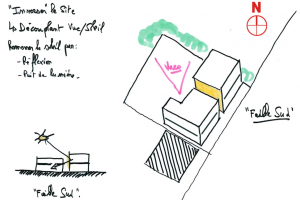 "Immersif le Site
↳ Découplant Vue/Soleil
Ramener le soleil par:
- Réflexion
- Puit de lumière.
"Faille Sud".
Vue
N
"Faille Sud"